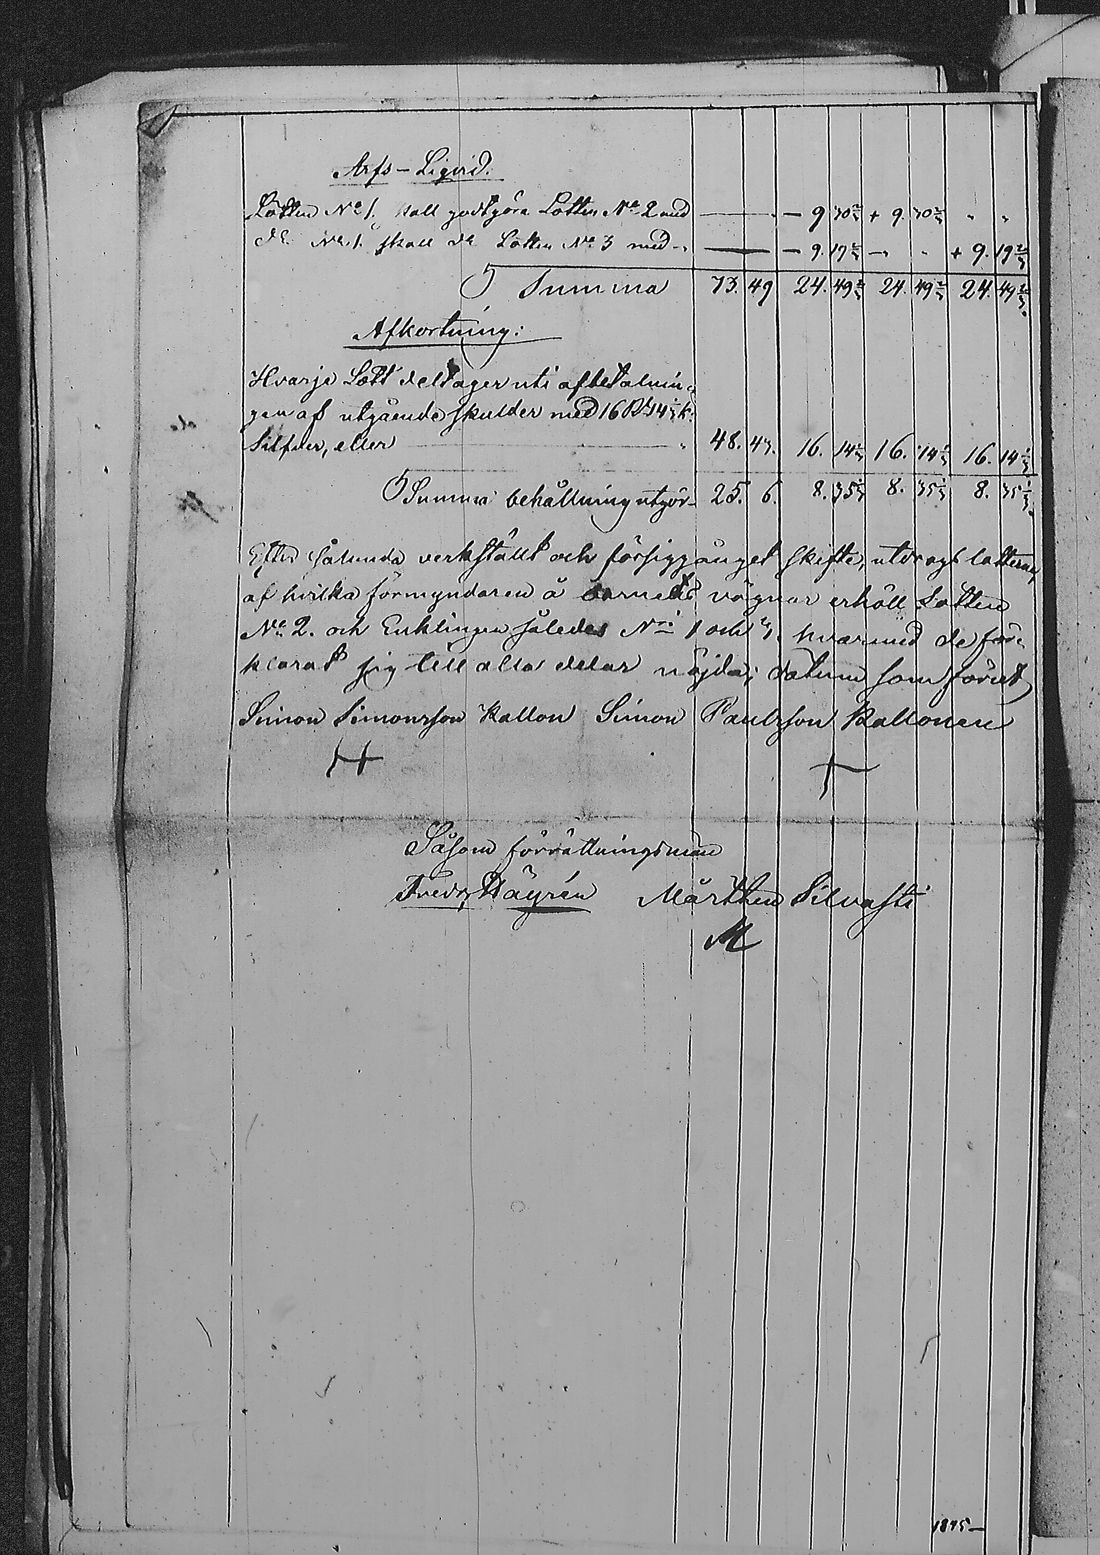 Arfs-Liqvid:
Lotten No 1. skall godtgöra Lotten No 2 med — - 9 30 2/3 + 9. 30 2/3 " "
do No 1. skall do Lotten No 3 med — - 9. 19 2/3 - " " + 9. 19 2/3
Summa 73. 49 24. 49 2/3 24. 49 2/3 24. 49 2/3
Afkortning:
Hvarje Lott deltager uti afbetalnin-
gen af utgående skulder med 16 Rb 14 1/3 k.
Silfver, eller 48. 43. 16. 14 1/3 16. 14 1/3 16. 14 1/3
Summa behållning utgör 25. 6. 8. 35 1/3 8. 35 1/3 8. 35 1/3
Efter sålunda verkställt och försiggånget skifte, utdrogs lotterna,
af hvilka förmyndaren å barnets vägnar erhöll Lotten
No 2. och Enklingen således No 1 och 3, hvarmed de för-
klarat sig till alla delar nöjda; datum som förut
Simon Simonsson Kallon Simon Paulsson Kallonen
Såsom förrättningsmän
Fredr. Häyrén Mårthen Silvasti
M
1895